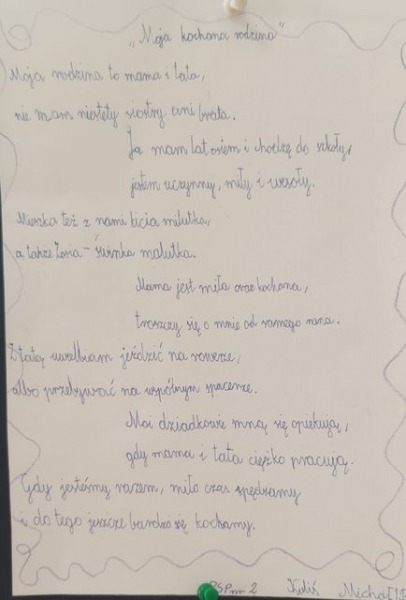 „Moja kochana rodzina"
Moja rodzina to mama i tata,
nie mam niestety siostry ani brata.
Ja mam lat osiem i chodzę do szkoły,
jestem uczynny, miły i wesoły.
Mieszka też z nami kicia milutka,
a także Zosia - świnka malutka.
Mama jest miła oraz kochana,
troszczy się o mnie od samego rana.
Z tatą uwielbiam jeździć na rowerze,
albo przebywać na wspólnym spacerze.
Moi dziadkowie mną się opiekują,
gdy mama i tata ciężko pracują.
Gdy jesteśmy razem, miło czas spędzamy
i do tego jeszcze bardzo się kochamy.
PSP nr 2 Kuliś Michał